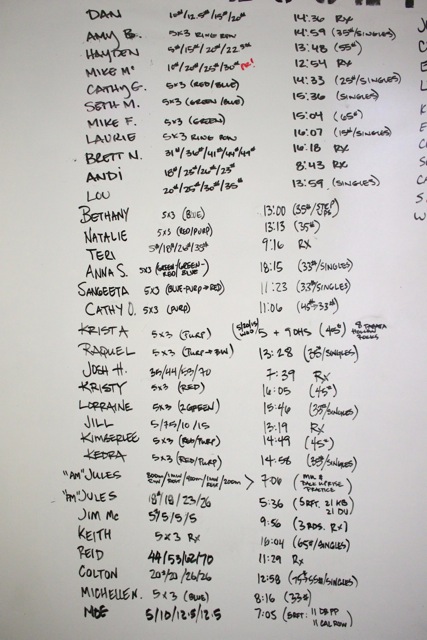 DAN 10#/12.5#/15#/20# 14:36 RX
AMY B. 5X3 RING ROW 14:59 (35#/SINGLES)
HAYDEN 5#/15#/20#/22.5# 13:48 (55#)
MIKE Mc 10#/20#/25#/30# PR! 12:54 RX
CATHY G. 5X3 (RED/BLUE) 14:33 (25#/SINGLES)
SETH M. 5X3 (GREEN/BLUE) 15:36 (SINGLES)
MIKE F. 5X3 (GREEN) 15:04 (65#)
LAURIE 5X3 RING ROW 16:07 (15#/SINGLES)
BRETT N. 31#/36#/41#/44#/49# 16:18 RX
ANDI 18#/25#/26#/23# 8:43 RX
LOU 20#/25#/30#/35# 13:59 (SINGLES)
BETHANY 5X3 (BLUE) 13:00 (35#/STEP UPS)
NATALIE 5X3 (RED/PURP) 13:13 (35#)
TERI 9:16 RX
ANNA S. 5X3 (GREEN/GREEN-RED/BLUE) 18:15 (33#/SINGLES)
SANGEETA 5X3 (BLUE-PURP→RED) 11:23 (33#/SINGLES)
CATHY O. 5X3 (PURP) 11:06 (45#→33#)
KRISTA 5X3 (PURP) 5 + 9 DHS (45#)
RAQUEL 5X3 13:28 (35#/SINGLES)
JOSH H. 35/44/53/70 7:39 RX
KRISTY 5X3 (RED) 16:05 (45#)
LORRAINE 5X3 (2GREEN) 15:46 (35#/SINGLES)
JILL 5/7.5/10/15 13:19 RX
KIMBERLEE 5X3 (RED/PURP) 14:49 (45#)
KEDRA 5X3 (RED/PURP) 14:58 (35#/SINGLES)
"AM" JULES 7:06 PRACTICE
"PM" JULES 18#/18/23/26 5:36 (5 RFT. 21 KB 21 DU)
JIM Mc 5/5/5/5 9:56 (3 RDS. RX)
KEITH 5X3 RX 16:04 (65#/SINGLES)
REID 44/53/62/70 11:29 RX
COLTON 20#/20/26/26 12:58
MICHELLE N. 5X3 (BLUE) 8:16 (33#)
MOE 5/10/12.5/12.5 7:05 (5 RFT. 11 CAL ROW)